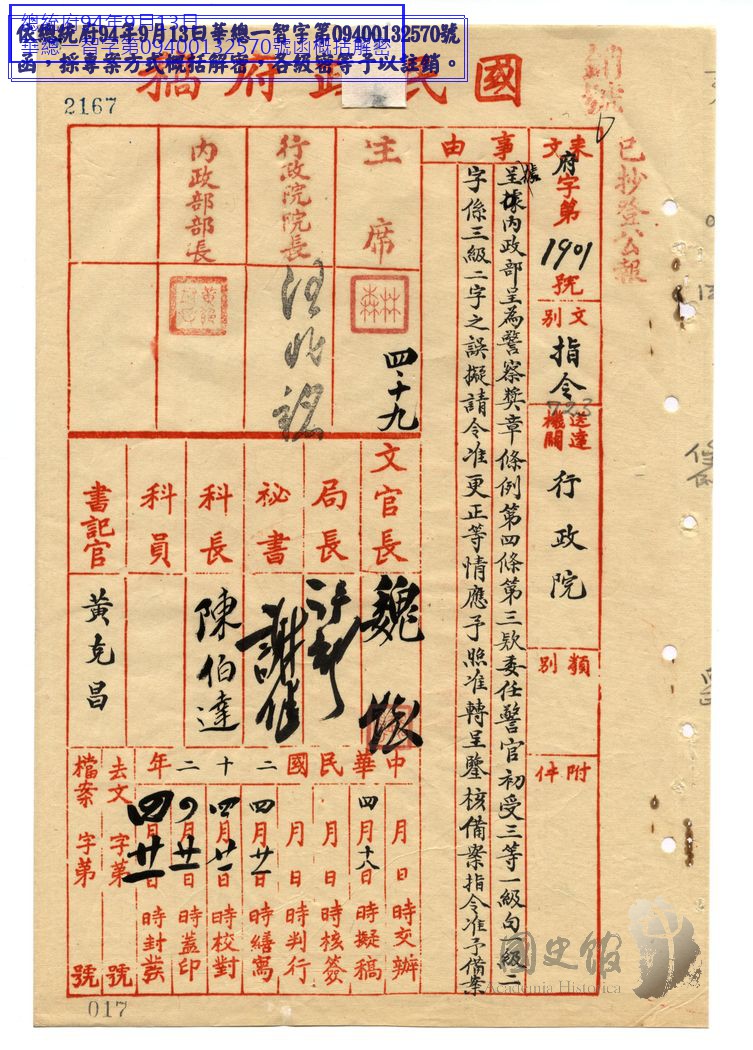 總統府94年9月13日
華總一智字第09400132570號函概括解密
依總統府94年9月13日華總一智字第09400132570號
函，採專案方式概括解密，各級密等予以註銷。
2167
國民政府稿
銷號
已抄登公報
來文
府字第1901號
文別
指令
723
送達機關
行政院
類別
附件
事由
呈據內政部呈為警察獎章條例第四條第三款委任警官初受三等一級句一級二
字係三級二字之誤擬請令准更正等情應予照准轉呈鑒核備案指令准予備案
主席
林森
四、十九
行政院院長
汪兆銘
內政部部長
文官長
魏懷
局長
秘書
科長
陳伯達
科員
書記官
黃克昌
中華民國二十二年
月日時交辦
四月十八日時擬稿
月日時核簽
月日時判行
四月廿一日時繕寫
四月廿一日時校對
四月廿一日時蓋印
四月廿一日時封發
去文字第號
檔案字第號
017
國史館
Academia Historica